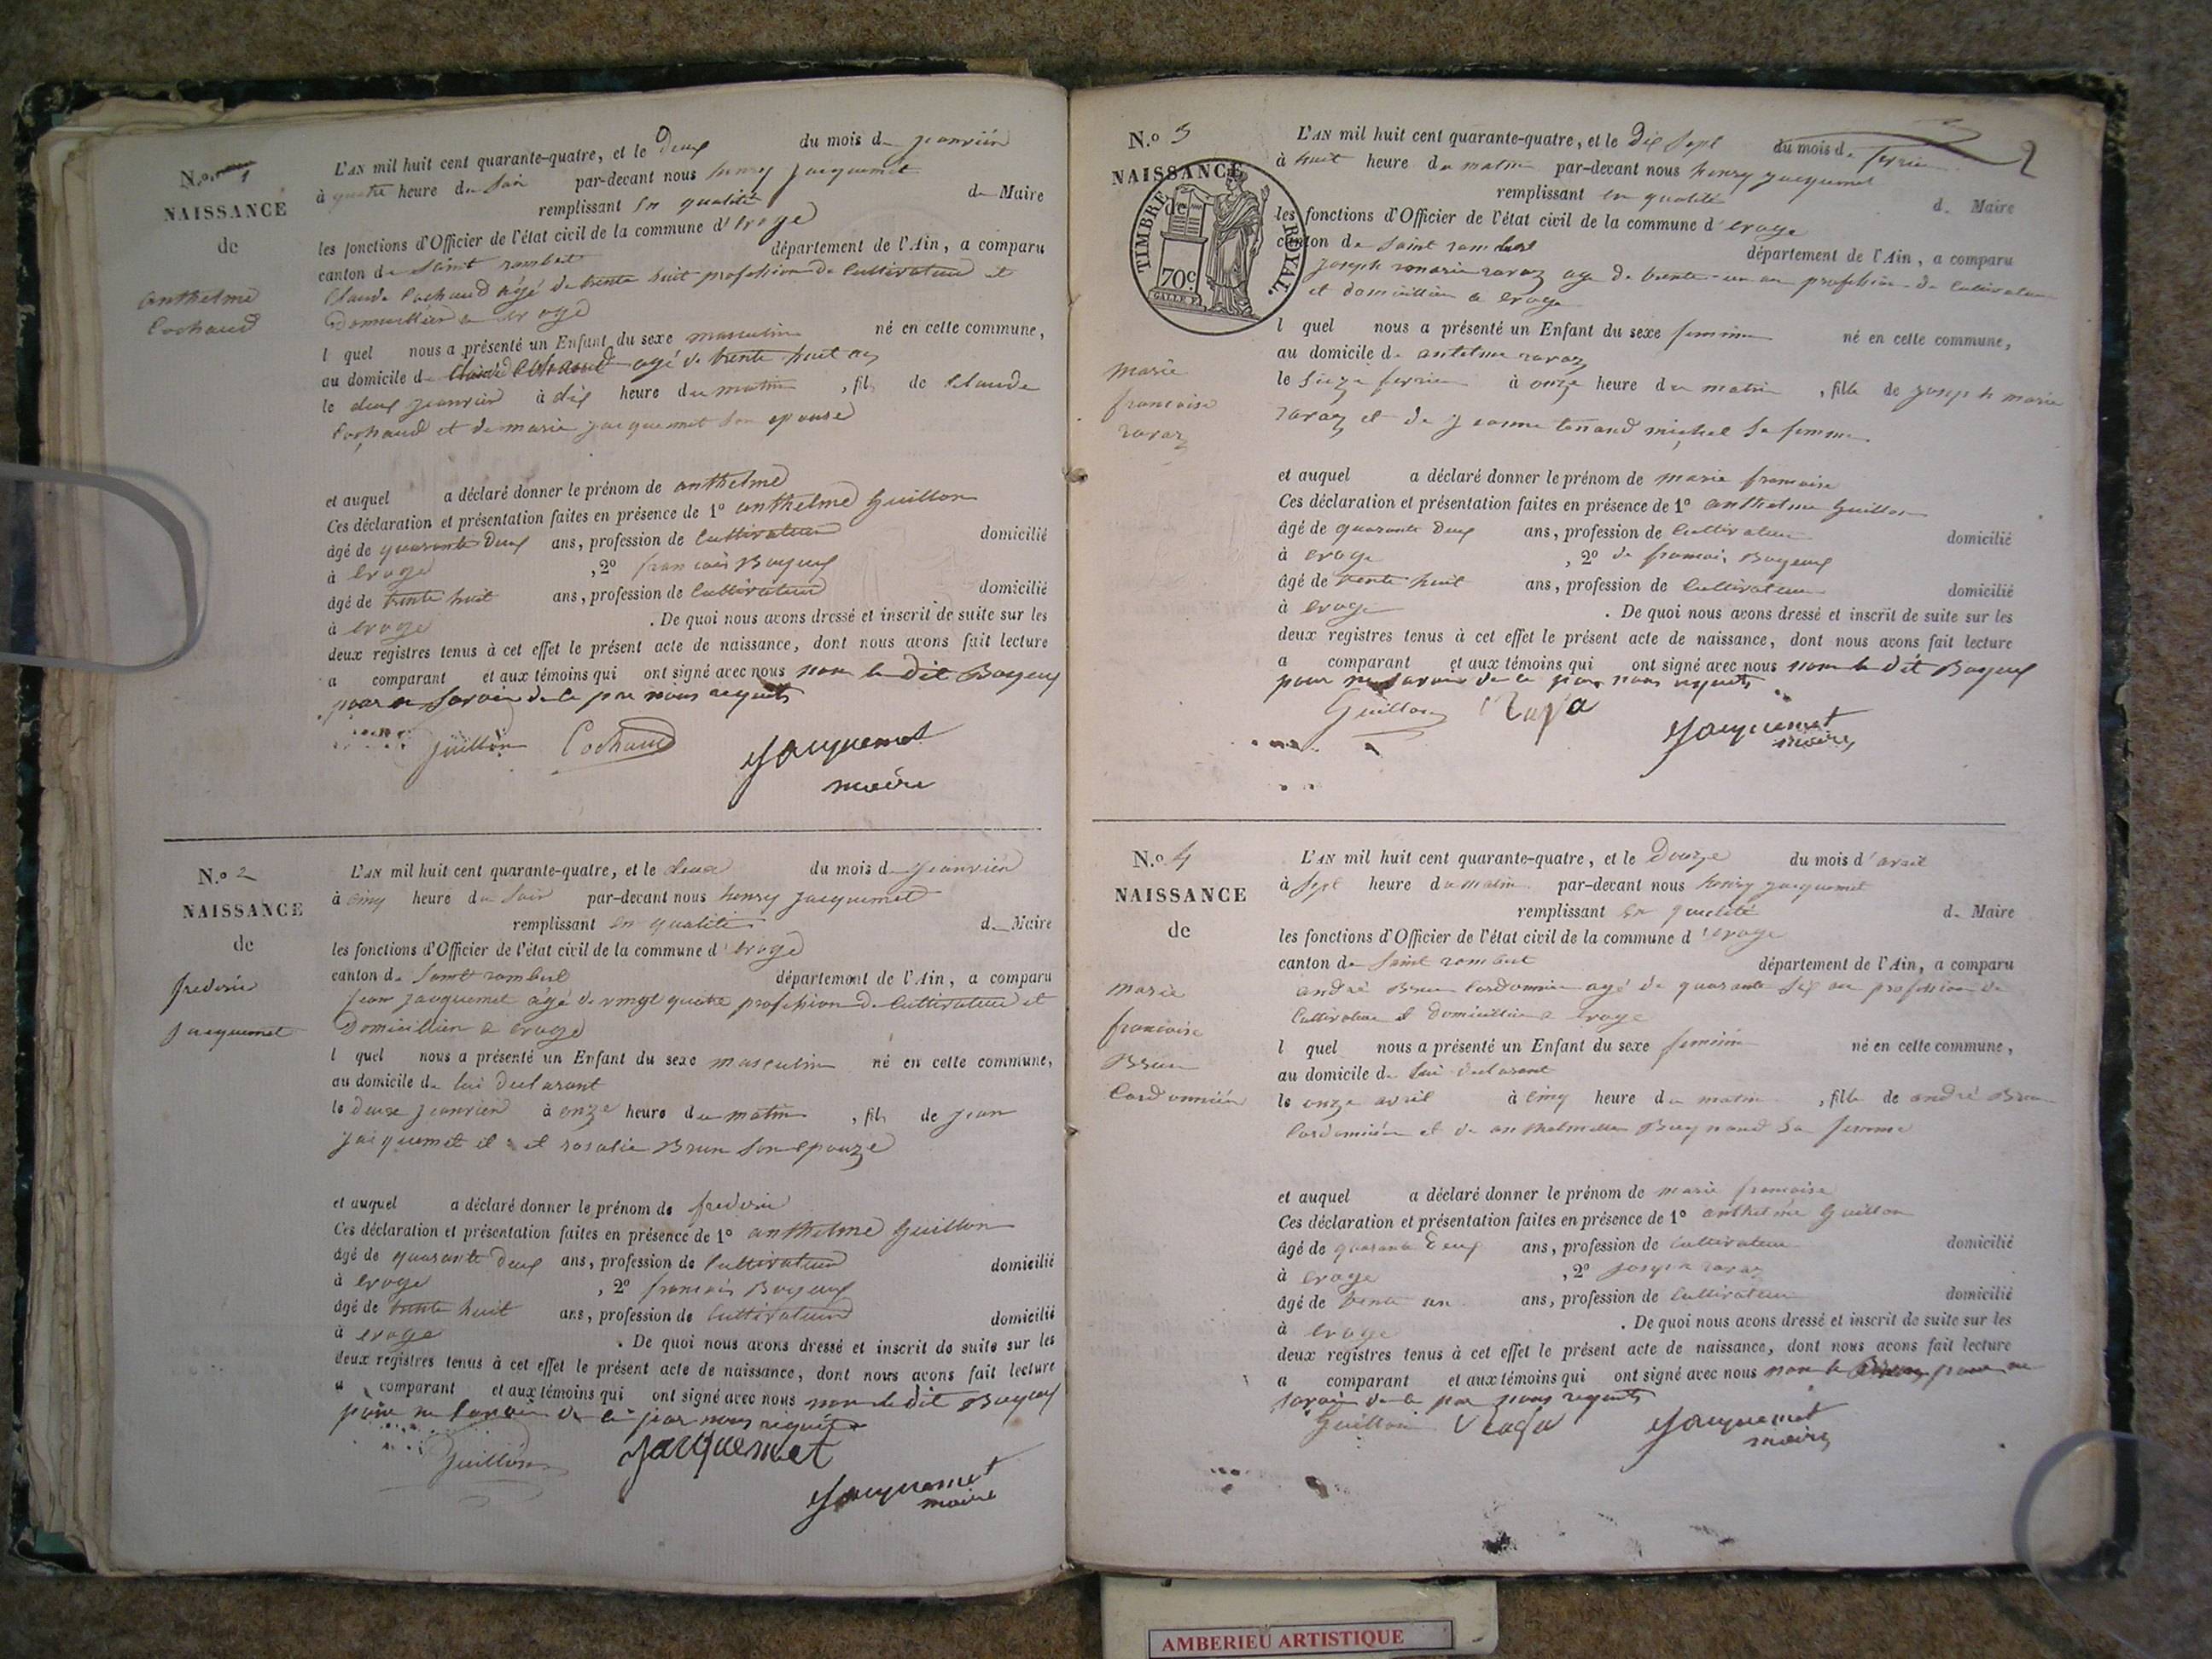 N.o 1
NAISSANCE
de
anthelme
Cochaud
L'AN mil huit cent quarante-quatre, et le Deux du mois d janvier
à quatre heure du soir par-devant nous henry jacquemet
remplissant en qualité d Maire
les fonctions d'Officier de l'état civil de la commune d'
canton de Saint rambert département de l'Ain, a comparu
Claude Cochaud agé de trente huit profession de Cultivateur et
l quel nous a présenté un Enfant du sexe masculin né en cette commune,
au domicile d agé de trente huit an
le deux janvier à dix heure du matin, fils de Claude
Cochaud et de marie jacquemet son epouse
et auquel a déclaré donner le prénom de anthelme
Ces déclaration et présentation faites en présence de 1o anthelme Guillon
âgé de quarante Deux ans, profession de Cultivateur domicilié
à, 2o francois
âgé de trente huit ans, profession de Cultivateur domicilié
à. De quoi nous avons dressé et inscrit de suite sur les
deux registres tenus à cet effet le présent acte de naissance, dont nous avons fait lecture
a comparant et aux témoins qui ont signé avec nous non le dit
Guillon Cochaud Jacquemet
maire
N.o 2
NAISSANCE
de
frederic
jacquemet
L'AN mil huit cent quarante-quatre, et le deux du mois d janvier
à cinq heure du soir par-devant nous henry jacquemet
remplissant en qualité d Maire
les fonctions d'Officier de l'état civil de la commune d'
canton de Saint rambert département de l'Ain, a comparu
jean jacquemet agé de vingt quatre profession de Cultivateur et
l quel nous a présenté un Enfant du sexe masculin né en cette commune,
au domicile de lui declarant
le deux janvier à onze heure du matin, fils de jean
jacquemet et et rosalie Brun son epouze
et auquel a déclaré donner le prénom de frederic
Ces déclaration et présentation faites en présence de 1o anthelme Guillon
âgé de quarante Deux ans, profession de Cultivateur domicilié
à, 2o francois
âgé de trente huit ans, profession de Cultivateur domicilié
à. De quoi nous avons dressé et inscrit de suite sur les
deux registres tenus à cet effet le présent acte de naissance, dont nous avons fait lecture
a comparant et aux témoins qui ont signé avec nous non le dit
Guillon Jacquemet
Jacquemet
maire
N.o 3
NAISSANCE
de
TIMBRE ROYAL.
70c.
marie
francoise
ravaz
L'AN mil huit cent quarante-quatre, et le Dix Sept du mois de
à huit heure du matin par-devant nous henry jacquemet
remplissant en qualité d Maire
les fonctions d'Officier de l'état civil de la commune d'
canton de Saint rambert département de l'Ain, a comparu
joseph marie ravaz age de trente un an profession de Cultivateur
l quel nous a présenté un Enfant du sexe feminin né en cette commune,
au domicile de antelme ravaz
le à onze heure du matin, fille de joseph marie
ravaz et de jeanne michel sa femme
et auquel a déclaré donner le prénom de marie francoise
Ces déclaration et présentation faites en présence de 1o anthelme Guillon
âgé de quarante Deux ans, profession de Cultivateur domicilié
à, 2o de francois
âgé de trente huit ans, profession de Cultivateur domicilié
à. De quoi nous avons dressé et inscrit de suite sur les
deux registres tenus à cet effet le présent acte de naissance, dont nous avons fait lecture
a comparant et aux témoins qui ont signé avec nous non le dit
Guillon Jacquemet
maire
N.o 4
NAISSANCE
de
marie
francoise
Brun
Cordonnier
L'AN mil huit cent quarante-quatre, et le Douze du mois d'avril
à Sept heure du matin par-devant nous henry jacquemet
remplissant en qualité d Maire
les fonctions d'Officier de l'état civil de la commune d'
canton de Saint rambert département de l'Ain, a comparu
andré Brun Cordonnier agé de quarante profession de
l quel nous a présenté un Enfant du sexe feminin né en cette commune,
au domicile de lui declarant
le onze avril à cinq heure du matin, fille de andré Brun
Cordonnier et de sa femme
et auquel a déclaré donner le prénom de marie francoise
Ces déclaration et présentation faites en présence de 1o anthelme Guillon
âgé de quarante Deux ans, profession de Cultivateur domicilié
à, 2o joseph ravaz
âgé de trente un ans, profession de Cultivateur domicilié
à. De quoi nous avons dressé et inscrit de suite sur les
deux registres tenus à cet effet le présent acte de naissance, dont nous avons fait lecture
a comparant et aux témoins qui ont signé avec nous non le
Guillon Jacquemet
maire
AMBERIEU ARTISTIQUE